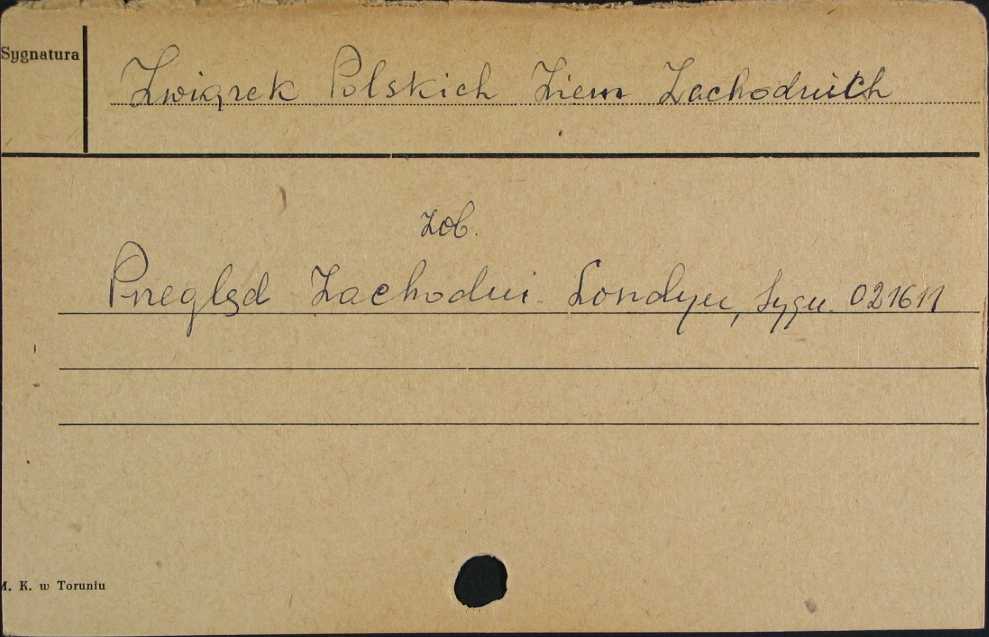 Sygnatura
Związek Polskich Ziem Zachodnich
zob.
Przegląd Zachodni. Londyn, sygn. 021611
M. K. w Toruniu